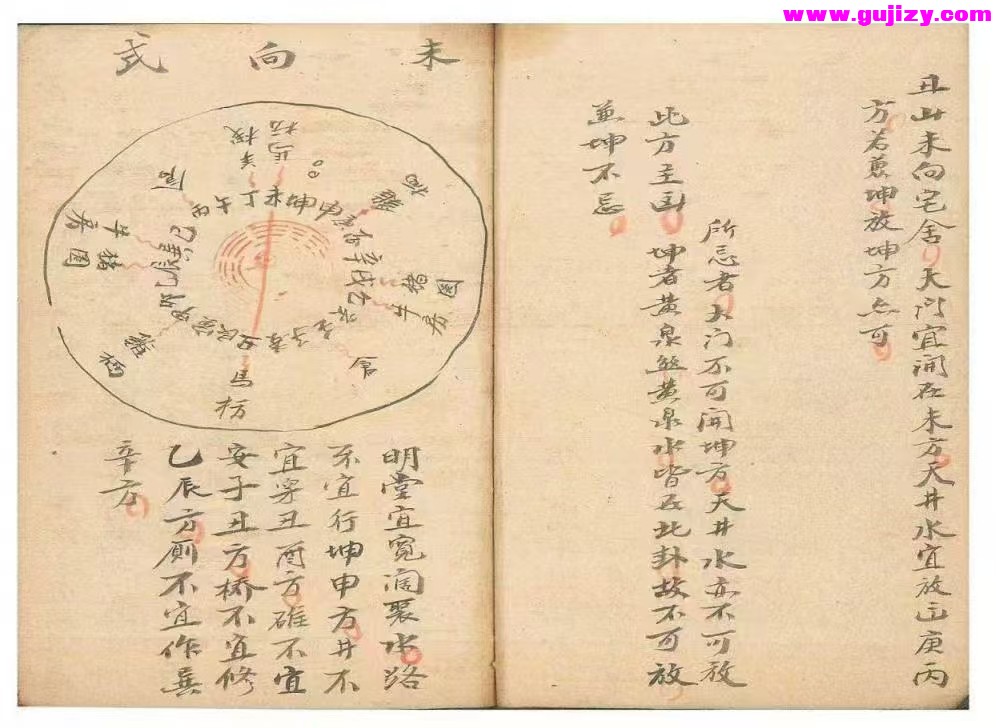 www.gujizy.com
丑山未向宅舍大门宜開在未方天井水宜放正庚丙
方若兼坤放坤方亦可
所忌者大门不可開坤方天井水亦不可放
此方主凶 坤者黄泉煞黄泉水皆在此卦故不可放
兼坤不忌
未向式
羊棧
馬枋
牛房
倉
馬枋
明堂宜寬闊聚水路
不宜行坤申方井不
宜穿丑酉方碓不宜
安子丑方橋不宜修
乙辰方厠不宜作巽
辛方